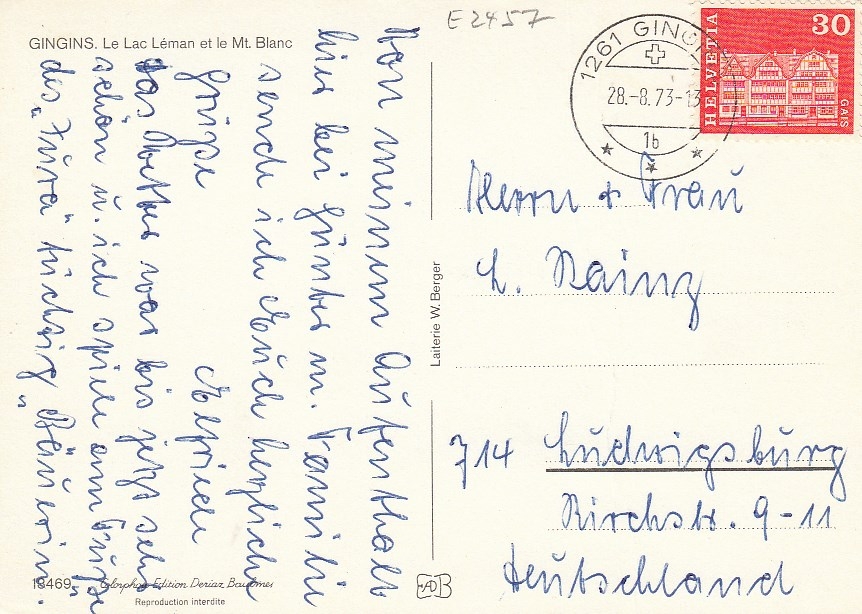 E2457
GINGINS. Le Lac Léman et le Mt. Blanc
Von meinem Aufenthalt
hier bei Günter m. Familie
sende ich Euch herzliche
Grüße
das Wetter war bis jetzt sehr
schön u. ich spiele am Fuße
des "Jura" tüchtig "Bäuerin".
13469
Colorphot Edition Deriaz Baulmes
Reproduction interdite
Laiterie W. Berger
1261 GINGINS
28.-8.73-13
1b
HELVETIA
30
GAIS
Herrn + Frau
L. Bainz
714 Ludwigsburg
Kirchstr. 9-11
Deutschland